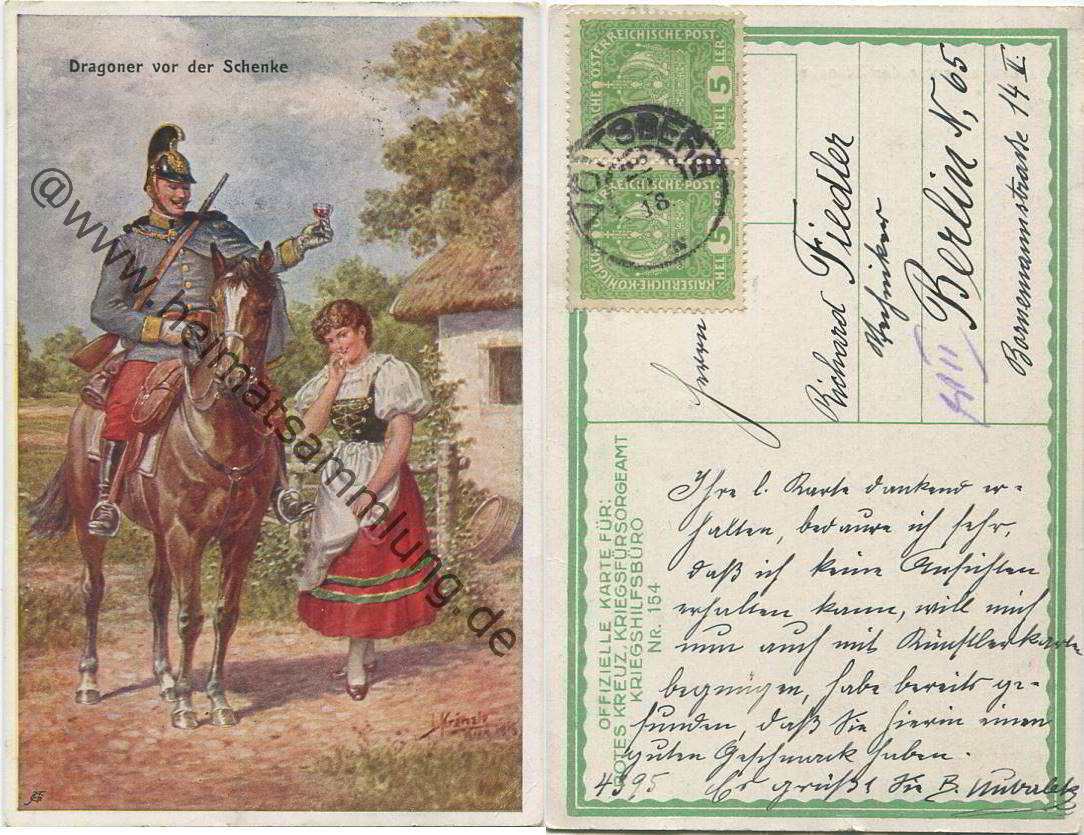 Dragoner vor der Schenke
@www.heimatsammlung.de
KAISERLICHE KÖNIGLICHE ÖSTERREICHISCHE POST
5 HELLER
KAISERLICHE KÖNIGLICHE ÖSTERREICHISCHE POST
5 HELLER
VOITSBERG
18
Herrn
Richard Fiedler
Mechniker
Berlin N, 65
Bornemannstraße 14 I
OFFIZIELLE KARTE FÜR:
ROTES KREUZ, KRIEGSFÜRSORGEAMT
KRIEGSHILFSBÜRO
NR. 154
Ihre l. Karte dankend er-
halten, bedaure ich sehr,
daß ich keine Ansichten
erhalten kann, will mich
nun auch mit Künstlerkarten
begnügen, habe bereits ge-
funden, daß Sie hierin einen
guten Geschmack haben.
4395 Es grüßt Sie B.